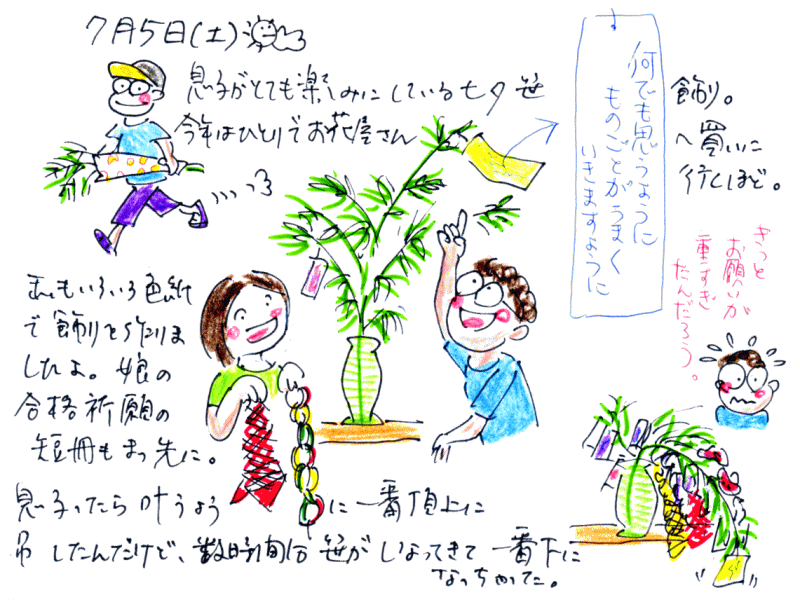 7月5日(土)
息子がとても楽しみにしている七夕笹
飾り。
今年はひとりでお花屋さん
へ買いに
行くほど。
何でも思うように
ものごとがうまく
いきますように
私もいろいろ色紙
で飾りを作りま
したよ。娘の
合格祈願の
短冊もまっ先に。
息子ったら叶うよう
に一番頂上に
吊したんだけど、数時間後笹がしなってきて一番下に
なっちゃってた。
きっと
お願いが
重すぎ
たんだろう。